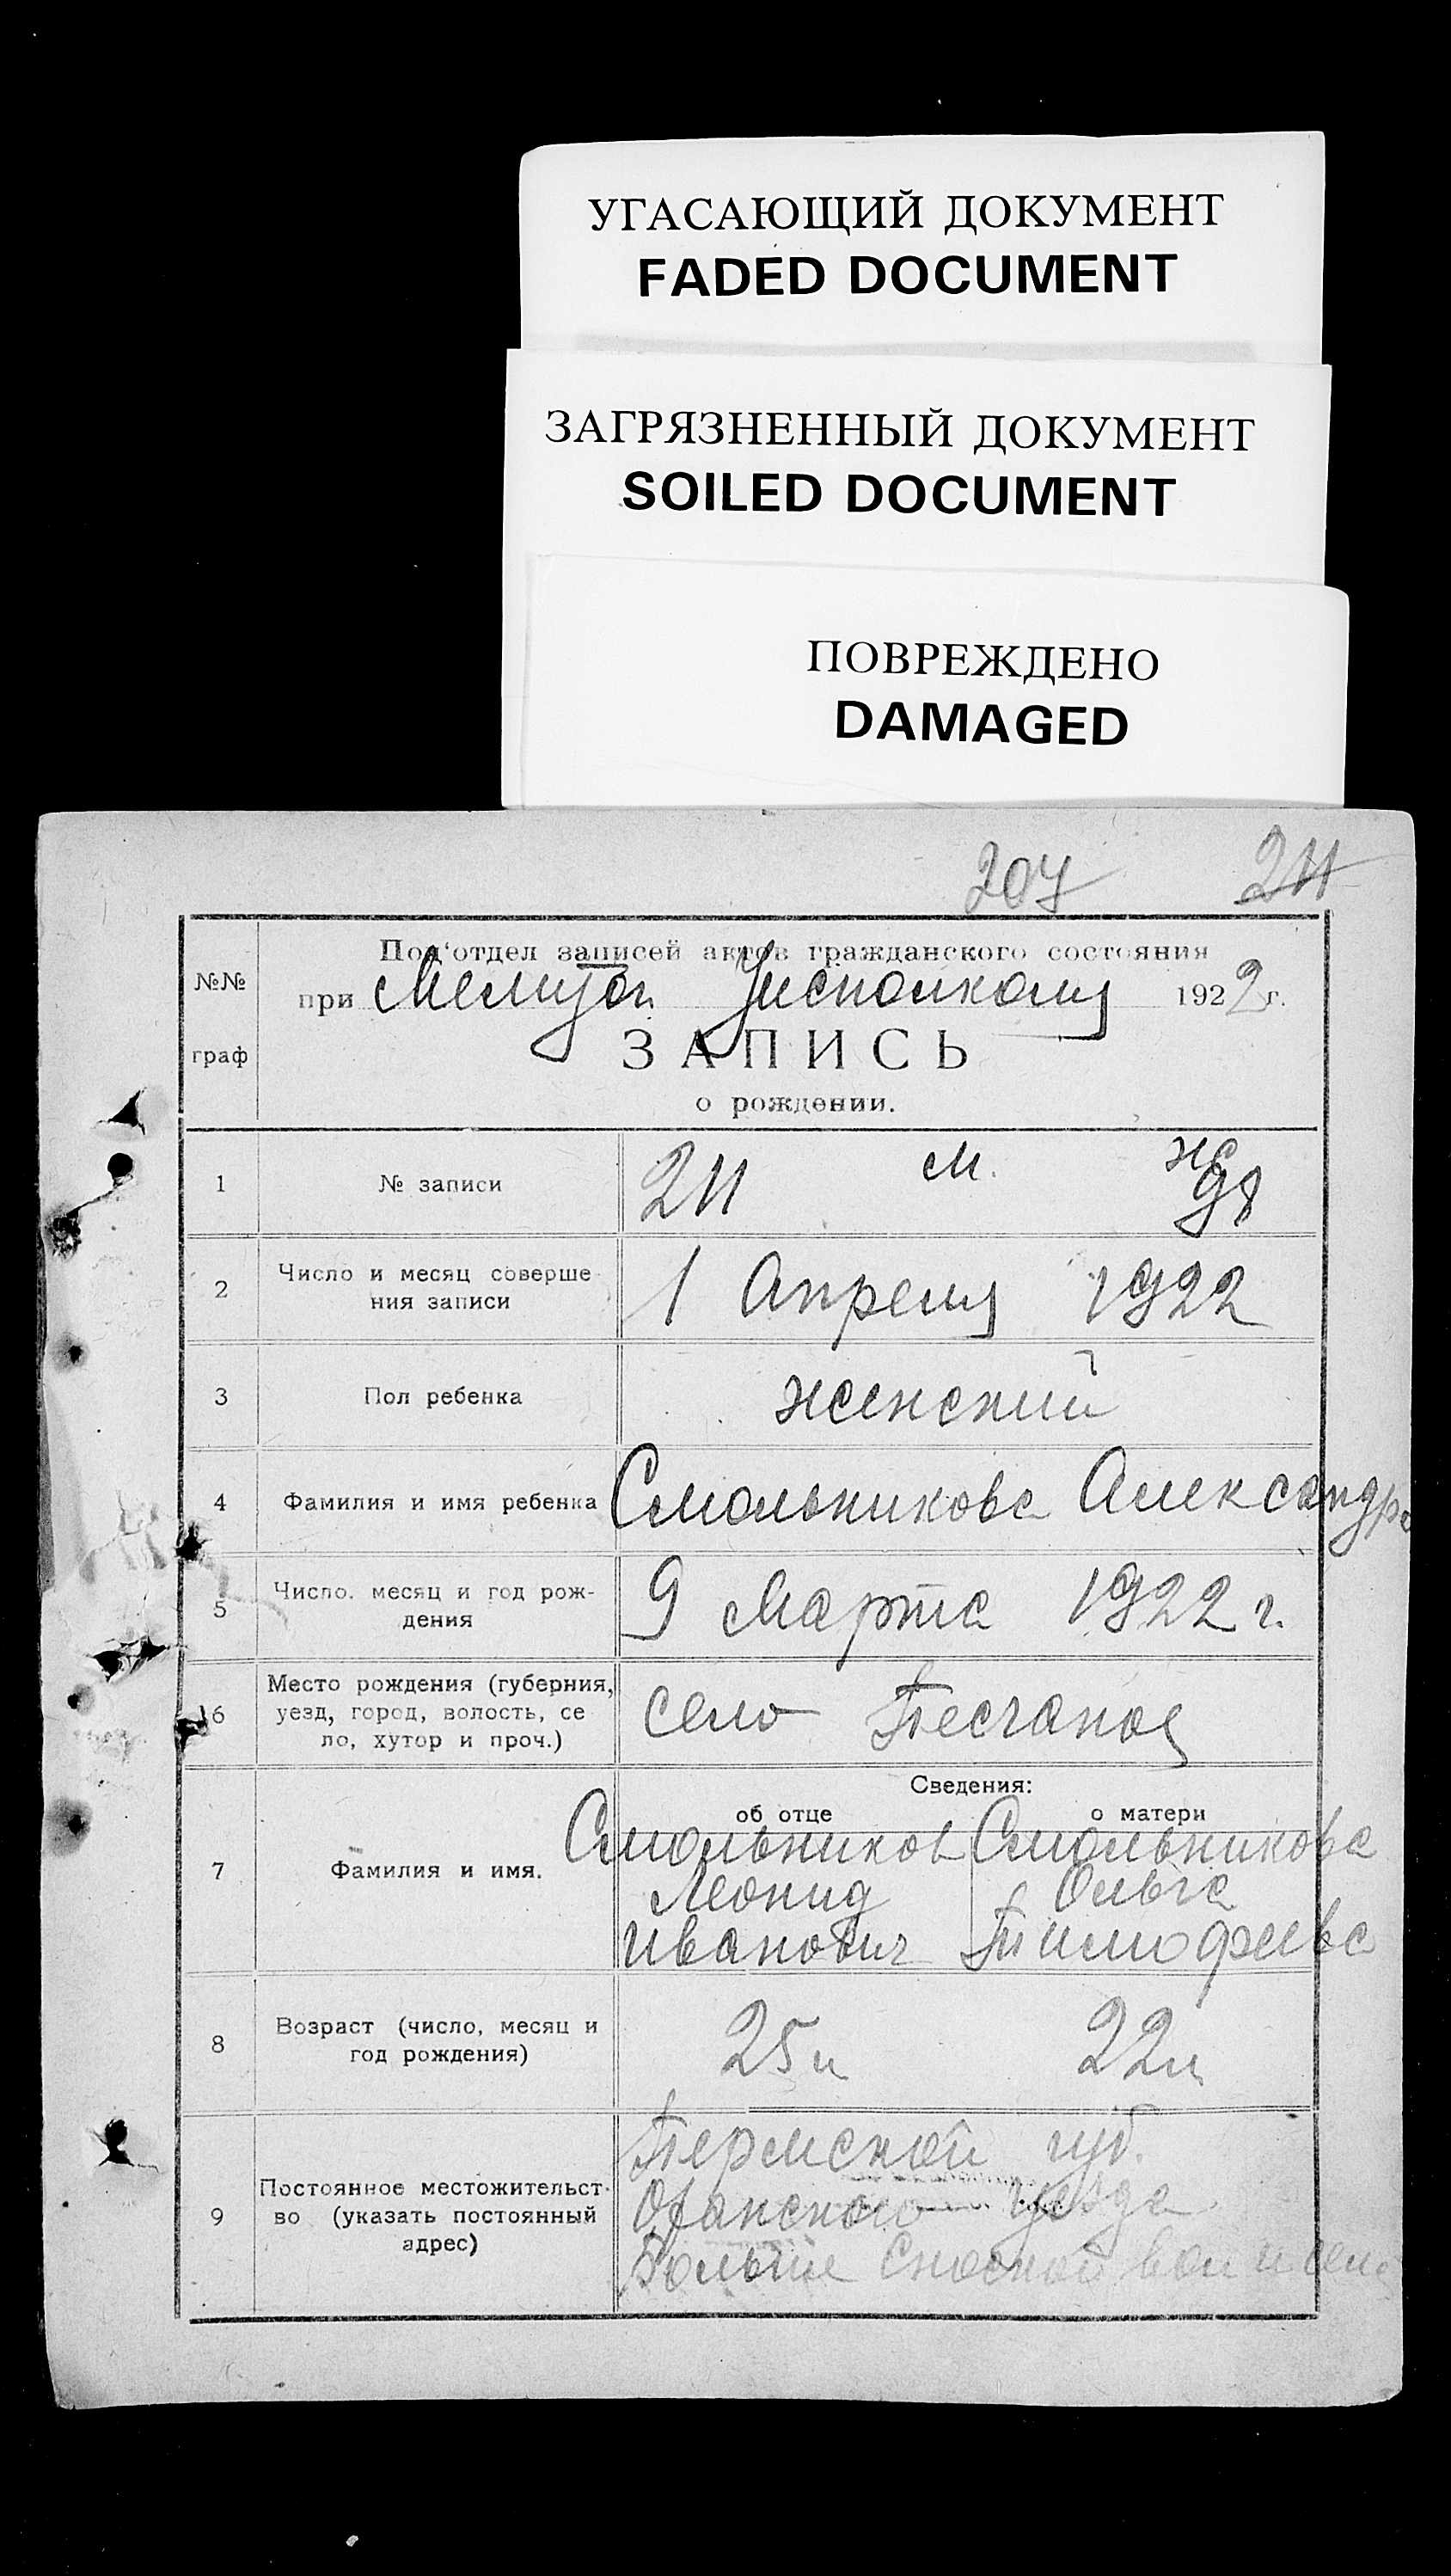 УГАСАЮЩИЙ ДОКУМЕНТ
FADED DOCUMENT
ЗАГРЯЗНЕННЫЙ ДОКУМЕНТ
SOILED DOCUMENT
ПОВРЕЖДЕНО
DAMAGED
207 211
№№ граф
Под'отдел записей актов гражданского состояния
при Исполкоме 1922 г.
ЗАПИСЬ
о рождении.
1 № записи 211 м. ж 98
2 Число и месяц соверше
ния записи 1 Апреля 1922
3 Пол ребенка женский
4 Фамилия и имя ребенка Смольникова Александра
5 Число. месяц и год рож-
дения 9 Марта 1922 г.
6 Место рождения (губерния,
уезд, город, волость, се
ло, хутор и проч.) село Песчаное
Сведения:
об отце о матери
7 Фамилия и имя. Смольников Смольникова
Леонид Ольга
Иванович Тимофеевна
8 Возраст (число, месяц и
год рождения) 25 л 22 л
9 Постоянное местожительст-
во (указать постоянный
адрес)
Пермской губ.
Оханского уезда
Больше Сновской вол и села